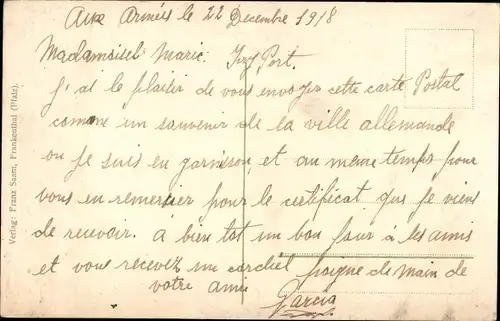 Aux Armées le 22 Decembre 1918
Madamoisel Marie.
J'ai le plaisir de vous envoyer cette carte Postal
comme un souvenir de la ville allemande
ou je suis en garnison, et au meme temps pour
vous en remercier pour le certificat que je viens
de recevoir. a bien tot un bon jour à les amis
et vous recevez un cordiel poigne de main de
votre ami
Garcia
Verlag: Franz Saam, Frankenthal (Pfalz).